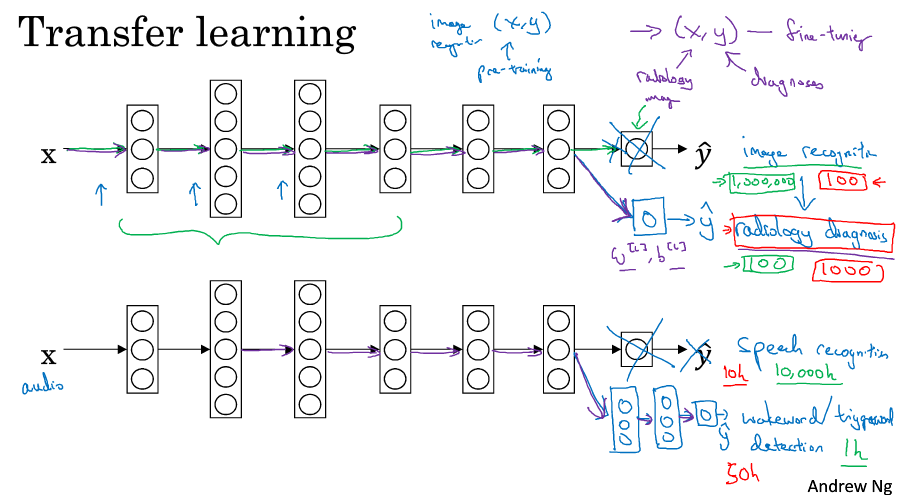 Transfer learning
image (x,y)
pre-training
→ (x,y) — fine-tuning
radiology
diagnoses
x
ŷ
image
1,000,000 100
ŷ
radiology diagnosis
w[L], b[L]
100 1000
x
audio
ŷ
speech recognition
10h 10,000h
ŷ
wakeword/triggerword
detection 1h
50h
Andrew Ng